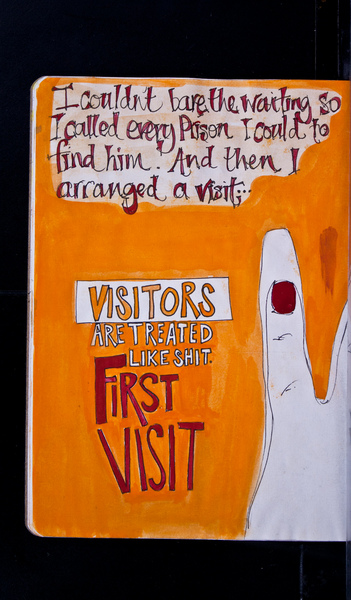 I couldn't bare the waiting so
I called every Prison I could to
find him. And then I
arranged a visit;...
VISITORS
ARE TREATED
LIKE SHIT.
FIRST
VISIT